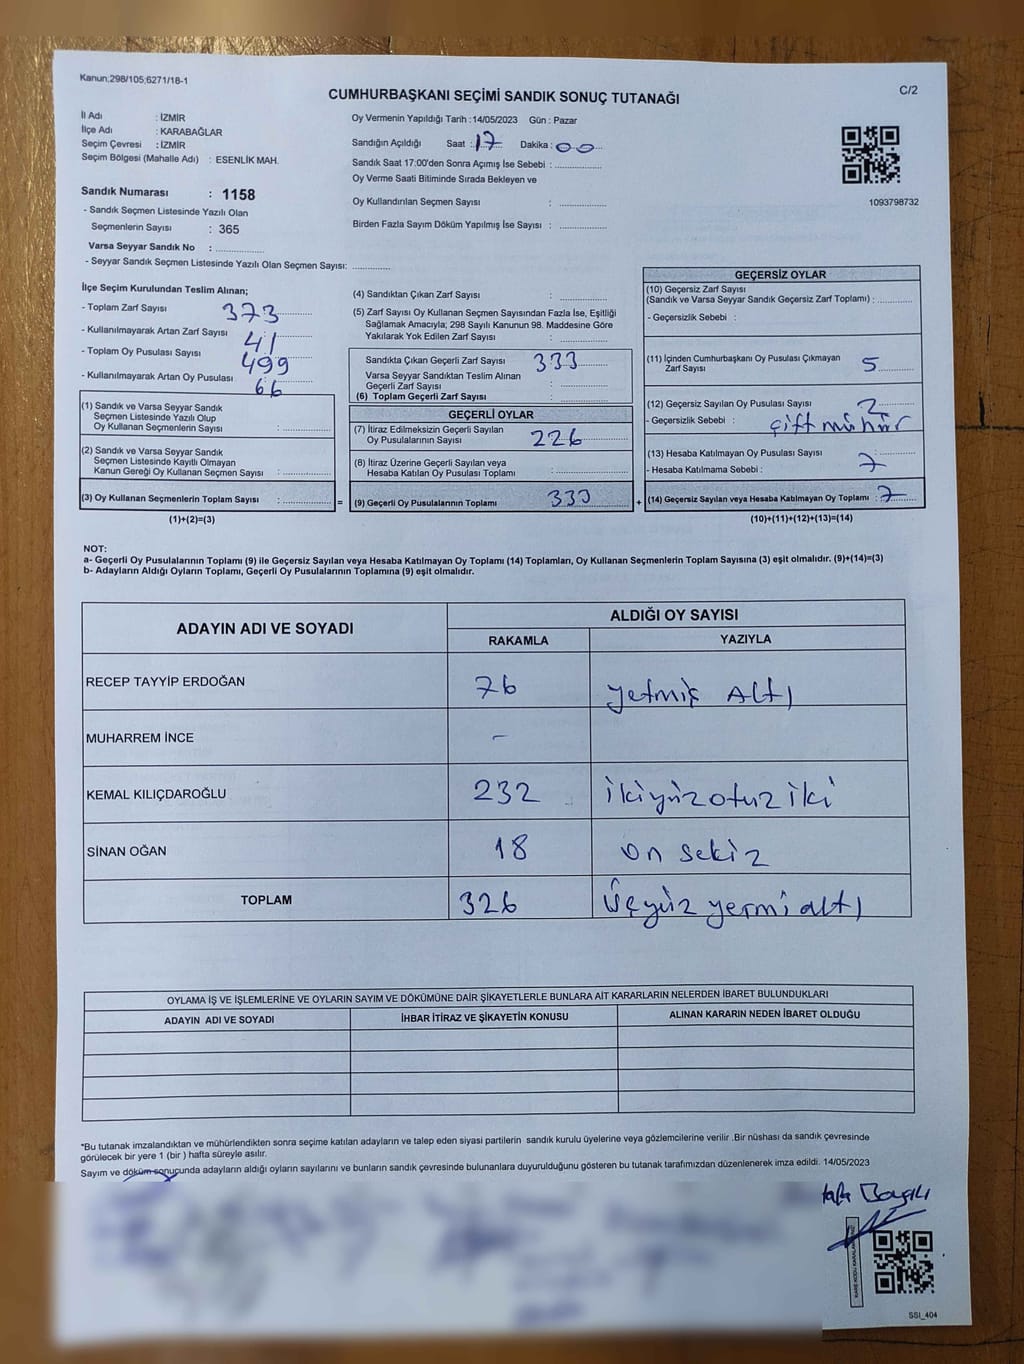 Kanun;298/105;6271/18-1
C/2
CUMHURBAŞKANI SEÇİMİ SANDIK SONUÇ TUTANAĞI
İl Adı : İZMİR
İlçe Adı : KARABAĞLAR
Seçim Çevresi : İZMİR
Seçim Bölgesi (Mahalle Adı) : ESENLİK MAH.
Sandık Numarası : 1158
- Sandık Seçmen Listesinde Yazılı Olan
Seçmenlerin Sayısı : 365
Varsa Seyyar Sandık No :
- Seyyar Sandık Seçmen Listesinde Yazılı Olan Seçmen Sayısı:
Oy Vermenin Yapıldığı Tarih :14/05/2023 Gün : Pazar
Sandığın Açıldığı Saat : 17 Dakika : 00
Sandık Saat 17:00'den Sonra Açımış İse Sebebi :
Oy Verme Saati Bitiminde Sırada Bekleyen ve
Oy Kullandırılan Seçmen Sayısı :
Birden Fazla Sayım Döküm Yapılmış İse Sayısı :
1093798732
İlçe Seçim Kurulundan Teslim Alınan;
- Toplam Zarf Sayısı 373
- Kullanılmayarak Artan Zarf Sayısı 41
- Toplam Oy Pusulası Sayısı 499
- Kullanılmayarak Artan Oy Pusulası 66
(1) Sandık ve Varsa Seyyar Sandık
Seçmen Listesinde Yazılı Olup
Oy Kullanan Seçmenlerin Sayısı :
(2) Sandık ve Varsa Seyyar Sandık
Seçmen Listesinde Kayıtlı Olmayan
Kanun Gereği Oy Kullanan Seçmen Sayısı :
(3) Oy Kullanan Seçmenlerin Toplam Sayısı : =
(1)+(2)=(3)
(4) Sandıktan Çıkan Zarf Sayısı :
(5) Zarf Sayısı Oy Kullanan Seçmen Sayısından Fazla İse, Eşitliği
Sağlamak Amacıyla; 298 Sayılı Kanunun 98. Maddesine Göre
Yakılarak Yok Edilen Zarf Sayısı :
Sandıkta Çıkan Geçerli Zarf Sayısı 333
Varsa Seyyar Sandıktan Teslim Alınan
Geçerli Zarf Sayısı :
(6) Toplam Geçerli Zarf Sayısı :
GEÇERLİ OYLAR
(7) İtiraz Edilmeksizin Geçerli Sayılan
Oy Pusulalarının Sayısı 226
(8) İtiraz Üzerine Geçerli Sayılan veya
Hesaba Katılan Oy Pusulası Toplamı :
(9) Geçerli Oy Pusulalarının Toplamı 333 +
GEÇERSİZ OYLAR
(10) Geçersiz Zarf Sayısı
(Sandık ve Varsa Seyyar Sandık Geçersiz Zarf Toplamı) :
- Geçersizlik Sebebi :
(11) İçinden Cumhurbaşkanı Oy Pusulası Çıkmayan
Zarf Sayısı 5
(12) Geçersiz Sayılan Oy Pusulası Sayısı : 2
- Geçersizlik Sebebi : çift mühür
(13) Hesaba Katılmayan Oy Pusulası Sayısı :
- Hesaba Katılmama Sebebi : 7
(14) Geçersiz Sayılan veya Hesaba Katılmayan Oy Toplamı : 7
(10)+(11)+(12)+(13)=(14)
NOT:
a- Geçerli Oy Pusulalarının Toplamı (9) ile Geçersiz Sayılan veya Hesaba Katılmayan Oy Toplamı (14) Toplamları, Oy Kullanan Seçmenlerin Toplam Sayısına (3) eşit olmalıdır. (9)+(14)=(3)
b- Adayların Aldığı Oyların Toplamı, Geçerli Oy Pusulalarının Toplamına (9) eşit olmalıdır.
ADAYIN ADI VE SOYADI
ALDIĞI OY SAYISI
RAKAMLA YAZIYLA
RECEP TAYYİP ERDOĞAN 76 yetmiş Altı
MUHARREM İNCE -
KEMAL KILIÇDAROĞLU 232 ikiyüzotuz iki
SİNAN OĞAN 18 on sekiz
TOPLAM 326 üçyüz yermi altı
OYLAMA İŞ VE İŞLEMLERİNE VE OYLARIN SAYIM VE DÖKÜMÜNE DAİR ŞİKAYETLERLE BUNLARA AİT KARARLARIN NELERDEN İBARET BULUNDUKLARI
ADAYIN ADI VE SOYADI İHBAR İTİRAZ VE ŞİKAYETİN KONUSU ALINAN KARARIN NEDEN İBARET OLDUĞU
*Bu tutanak imzalandıktan ve mühürlendikten sonra seçime katılan adayların ve talep eden siyasi partilerin sandık kurulu üyelerine veya gözlemcilerine verilir .Bir nüshası da sandık çevresinde
görülecek bir yere 1 (bir ) hafta süreyle asılır.
Sayım ve döküm sonucunda adayların aldığı oyların sayılarını ve bunların sandık çevresinde bulunanlara duyurulduğunu gösteren bu tutanak tarafımızdan düzenlenerek imza edildi. 14/05/2023
SSI_404